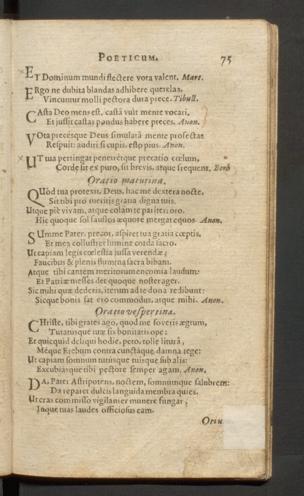 POETICUM. 75
ET Dominum mundi flectere vota valent. Mart.
ERgo ne dubita blandas adhibere querelas,
Vincuntur molli pectora dura prece. Tibull.
CAsta Deo mens est, castâ vult mente vocari,
Et justis castas pondus habere preces. Anon.
VOta precésque Deus simulatâ mente profectas
Respuit: auditi si cupis, esto pius. Anon.
UT tua pertingat penetrétque precatio cœlum,
Corde sit ex puro, sit brevis, atque frequens.
Oratio matutina.
QUòd tua protexit, Deus, hac me dextera nocte,
Sit tibi pro meritis gratia digna tuis.
Utque piè vivam, atque colam te pariter: oro,
Hic quoque sol faustos æquore integat equos. Anon.
SUmme Pater, precor, aspiret tua gratia cœptis,
Et mea collustret lumine corda sacro.
Ut capiam legis cœlestia jussa verendæ;
Faucibus & plenis flumina sacra bibam.
Atque tibi cantem meritorum encomia laudum:
Et Patriæ messes det quoque noster ager.
Sic mihi quæ dederis, iterum ad te dona redibunt:
Sicque bonis sat ero commodus, atque mihi. Anon.
Oratio vespertina.
CHriste, tibi grates ago, quod me foveris ægrum,
Tutatusque tuæ sis bonitatis ope:
Et quicquid deliqui hodie, peto, tolle liturâ,
Méque Erebum contra cunctáque damna tege:
Ut capiam somnum tutusque tuisque sub alis:
Excubiásque tibi pectore semper agam. Anon.
DA, Pater Astripotens, noctem, somnumque salubrem:
Da reparet dulcis languida membra quies.
Ut cras commisso vigilanter munere fungar,
Inque tuas laudes officiosus eam.